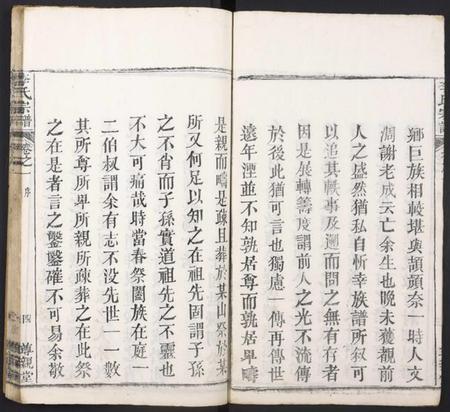 鄉巨族相較堪輿頡頏奈一時人文
凋謝老成云亡余生也晚未獲覩前
人之盛然猶私自忻幸族譜所叙可
以追其軼事及遡而問之無有存者
因是展轉籌度謂前人之光不流傳
於後此猶可言也獨慮一傳再傳世
遠年湮並不知孰居尊而孰居卑疇
是親而疇是疎且葬於某山祭於某
所又何足以知之在祖先固謂子孫
之不肖而子孫實道祖先之不靈也
不大可痛哉時當春祭闔族在庭一
二伯叔謂余有志不没先世一一數
其所尊所卑所親所疎葬之在此祭
之在是者言之鑿鑿確不可易余敢
氏宗譜
卷之一
序
四
尊親堂
氏宗譜